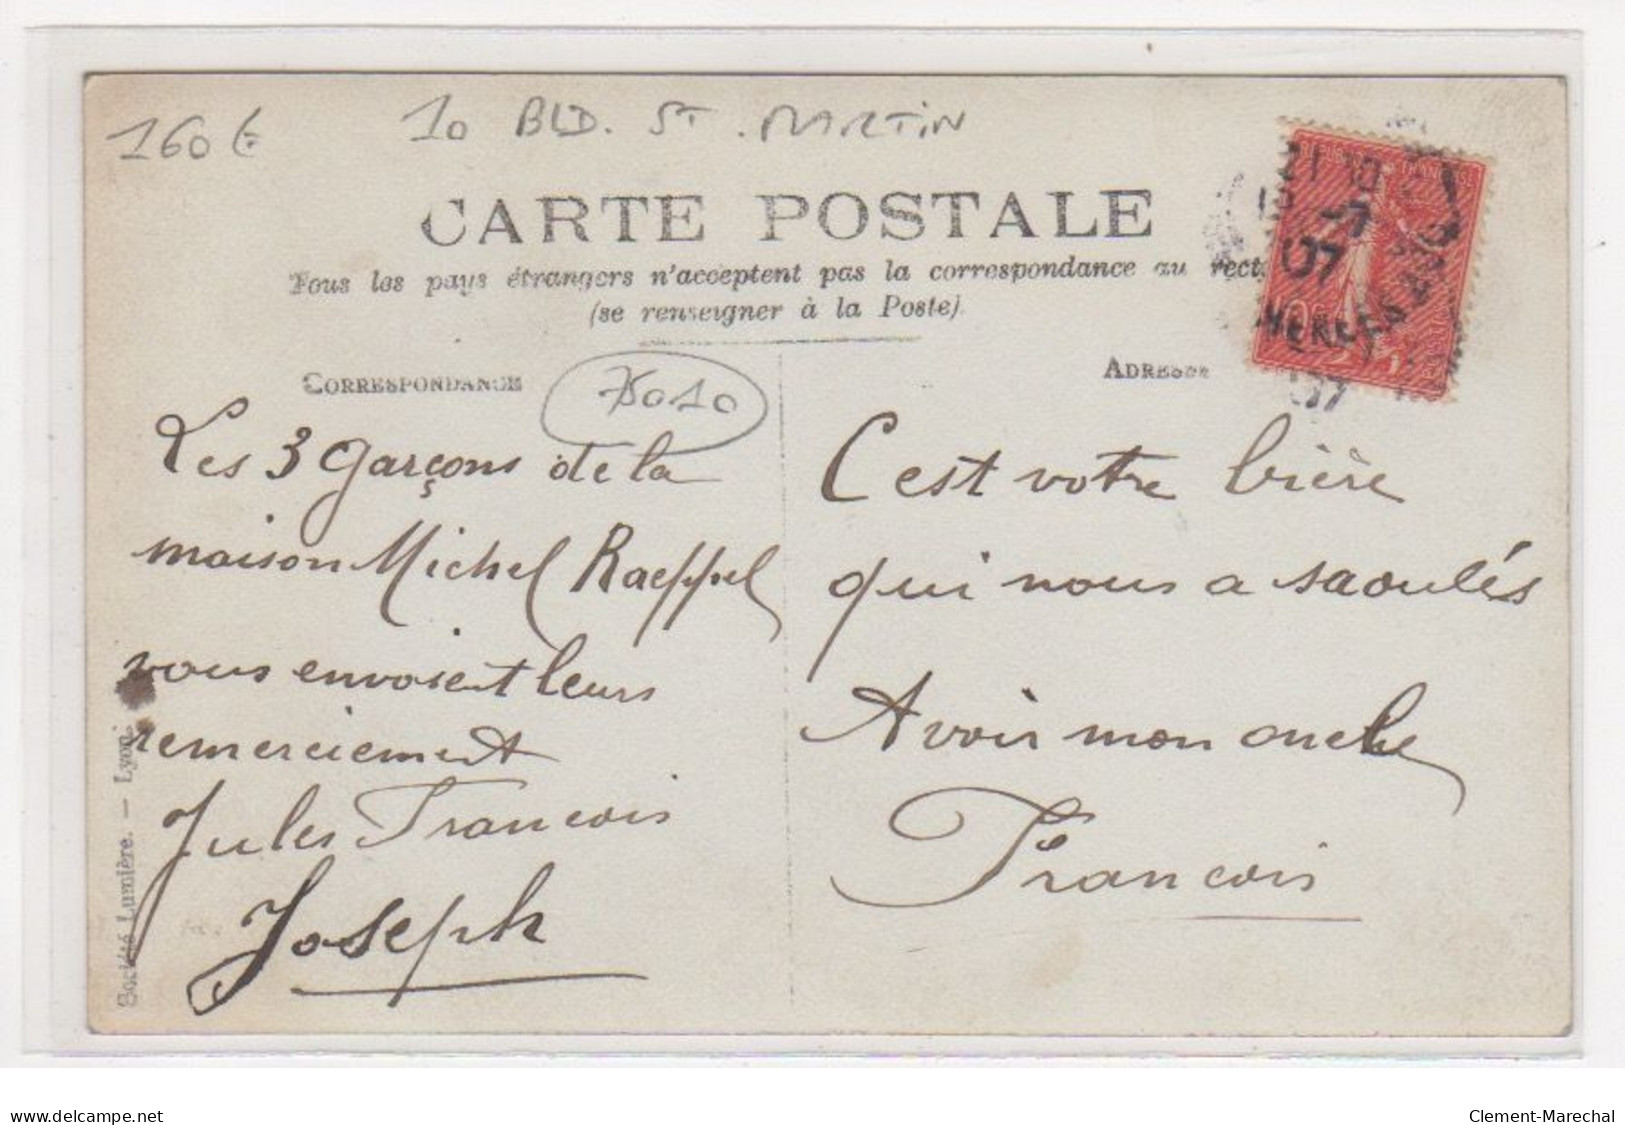 160€
10 BLD. ST. MARTIN
CARTE POSTALE
Tous les pays étrangers n'acceptent pas la correspondance au rect
(se renseigner à la Poste)
CORRESPONDANCE
75010
ADRESSE
21
-7
07
07
Les 3 garçons de la
maison Michel Raeppel
vous envoient leurs
remerciement
Jules Francois
Joseph
C'est votre bière
qui nous a saoulés
Avoir mon oncle
Francois
Société Lumière. — Lyon.
delcampe.net
Clement-Marechal